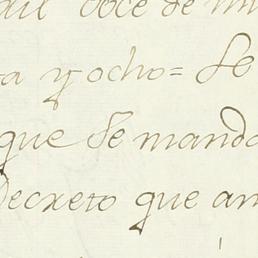 doce de
a y ocho = Se
que se mando
Decreto que an